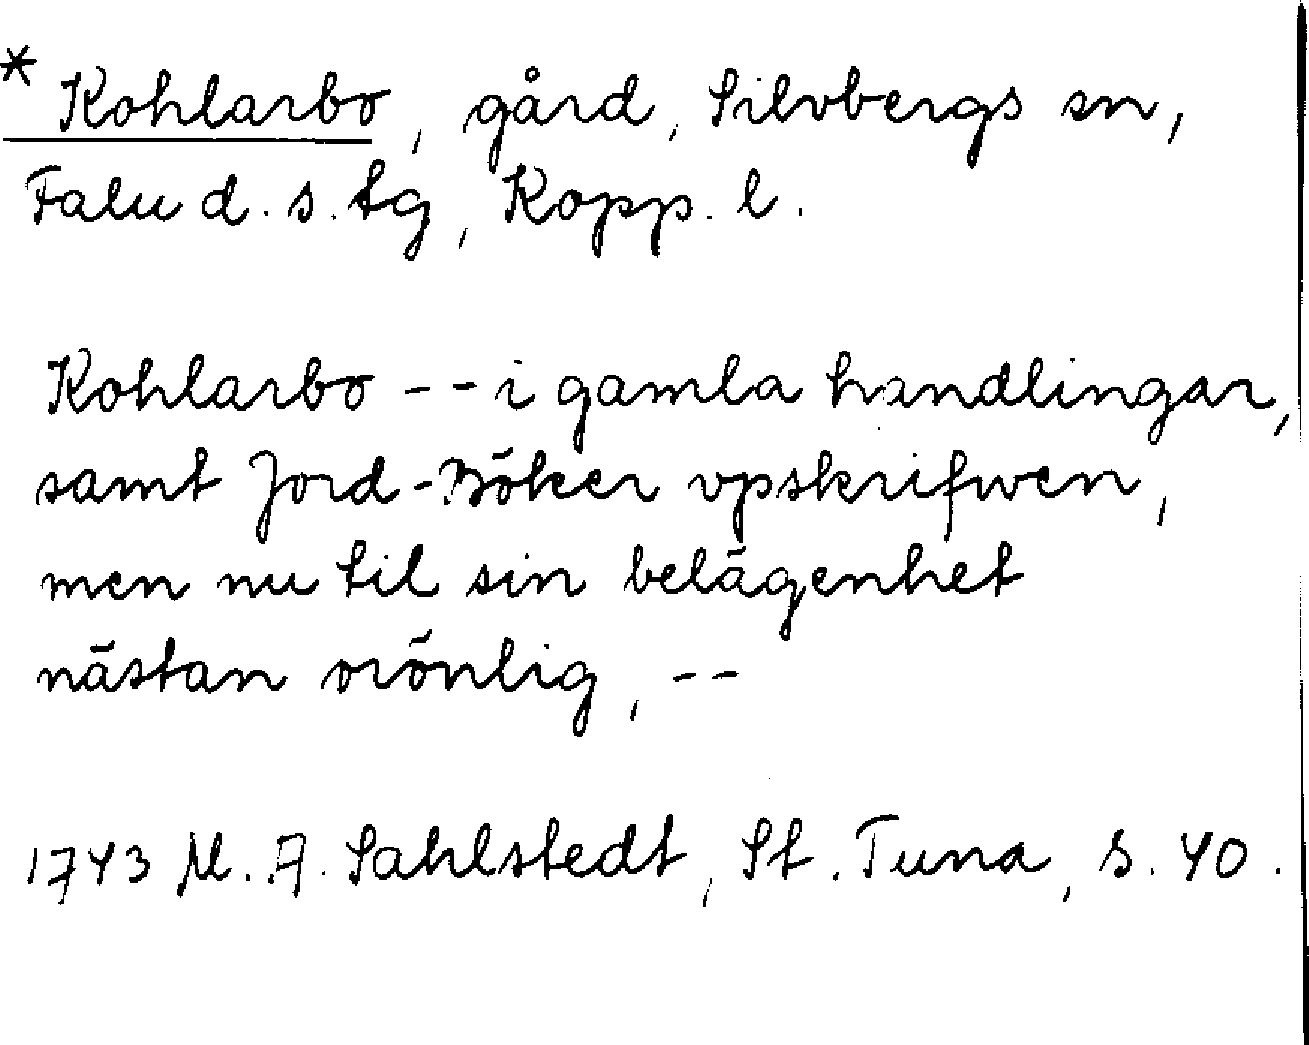 * Kohlarbo, gård, Silvbergs sn,
Falu d. s. tg, Kopp. l.
Kohlarbo -- i gamla handlingar,
samt Jord-Böker vpskrifwen,
men nu til sin belägenhet
nästan orönlig, --
1743 M. A. Sahlstedt, St. Tuna, s. 40.